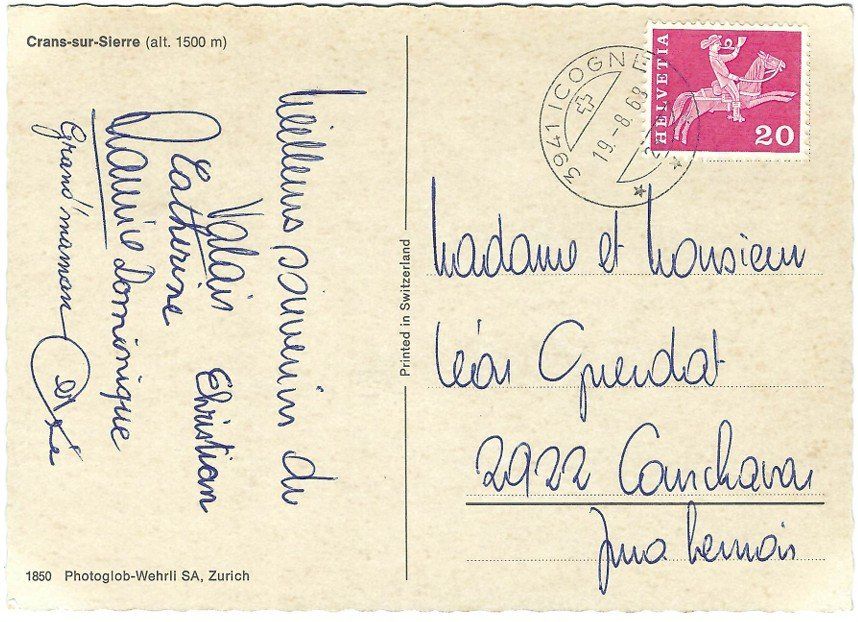 Crans-sur-Sierre (alt. 1500 m)
Meilleurs souvenirs du
Valais Christian
Catherine
Dominique
Grand'maman
1850 Photoglob-Wehrli SA, Zurich
Printed in Switzerland
3941 ICOGNE
19.-8.68
HELVETIA
20
Madame et Monsieur
Léon Guerdat
2922 Courchavon
Jura bernois